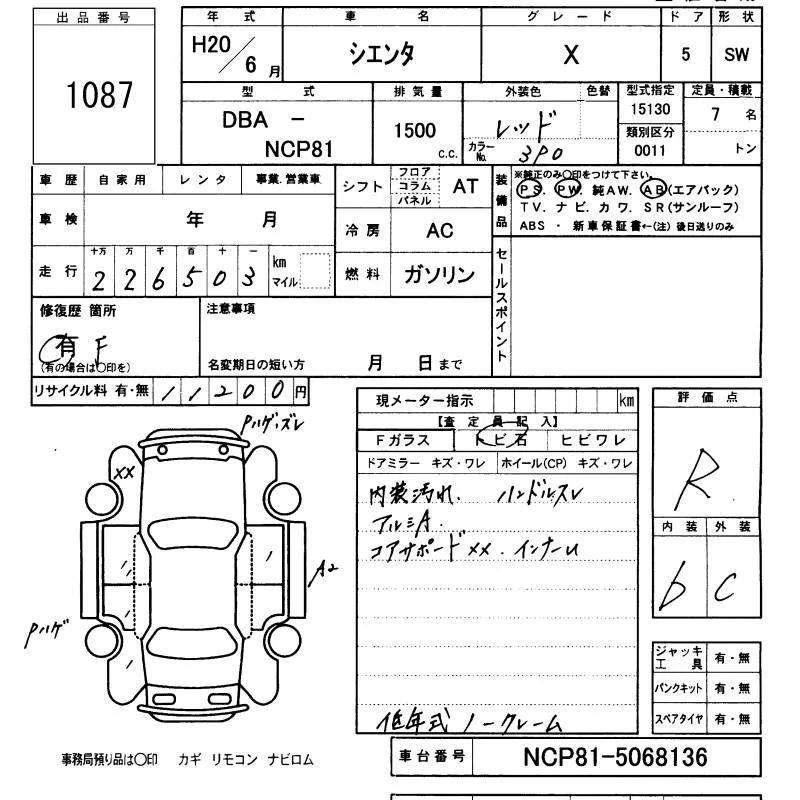 出品番号
1087
年式 車名 グレード ドア 形状
H20/6月 シエンタ X 5 SW
型式 排気量 外装色 色替 型式指定 定員・積載
DBA - 1500 c.c. レッド 15130 7 名
NCP81 カラーNo. 3P0 類別区分 0011 トン
車歴 自家用 レンタ 事業.営業車
車検 年 月
走行 十万 万 千 百 十 一 km マイル
2 2 6 5 0 3
シフト フロア コラム パネル AT
冷房 AC
燃料 ガソリン
装備品
※純正のみ○印をつけて下さい。
PS. PW. 純AW. AB(エアバック)
TV. ナビ. カワ. SR(サンルーフ)
ABS ・ 新車保証書←(注) 後日送りのみ
セールスポイント
修復歴 箇所
有 F
(有の場合は○印を)
注意事項
名変期日の短い方 月 日まで
リサイクル料 有・無 11200円
現メーター指示 km
【査定員記入】
Fガラス トビ石 ヒビワレ
ドアミラー キズ・ワレ ホイール(CP) キズ・ワレ
内装汚れ. ハンドルスレ
アルミA.
コアサポードXX. インナーU
低年式 ノークレーム
評価点
R
内装 外装
b C
ジャッキ工具 有・無
パンクキット 有・無
スペアタイヤ 有・無
Pハゲ,ズレ
XX
A2
Pハゲ
事務局預り品は○印 カギ リモコン ナビロム
車台番号 NCP81-5068136